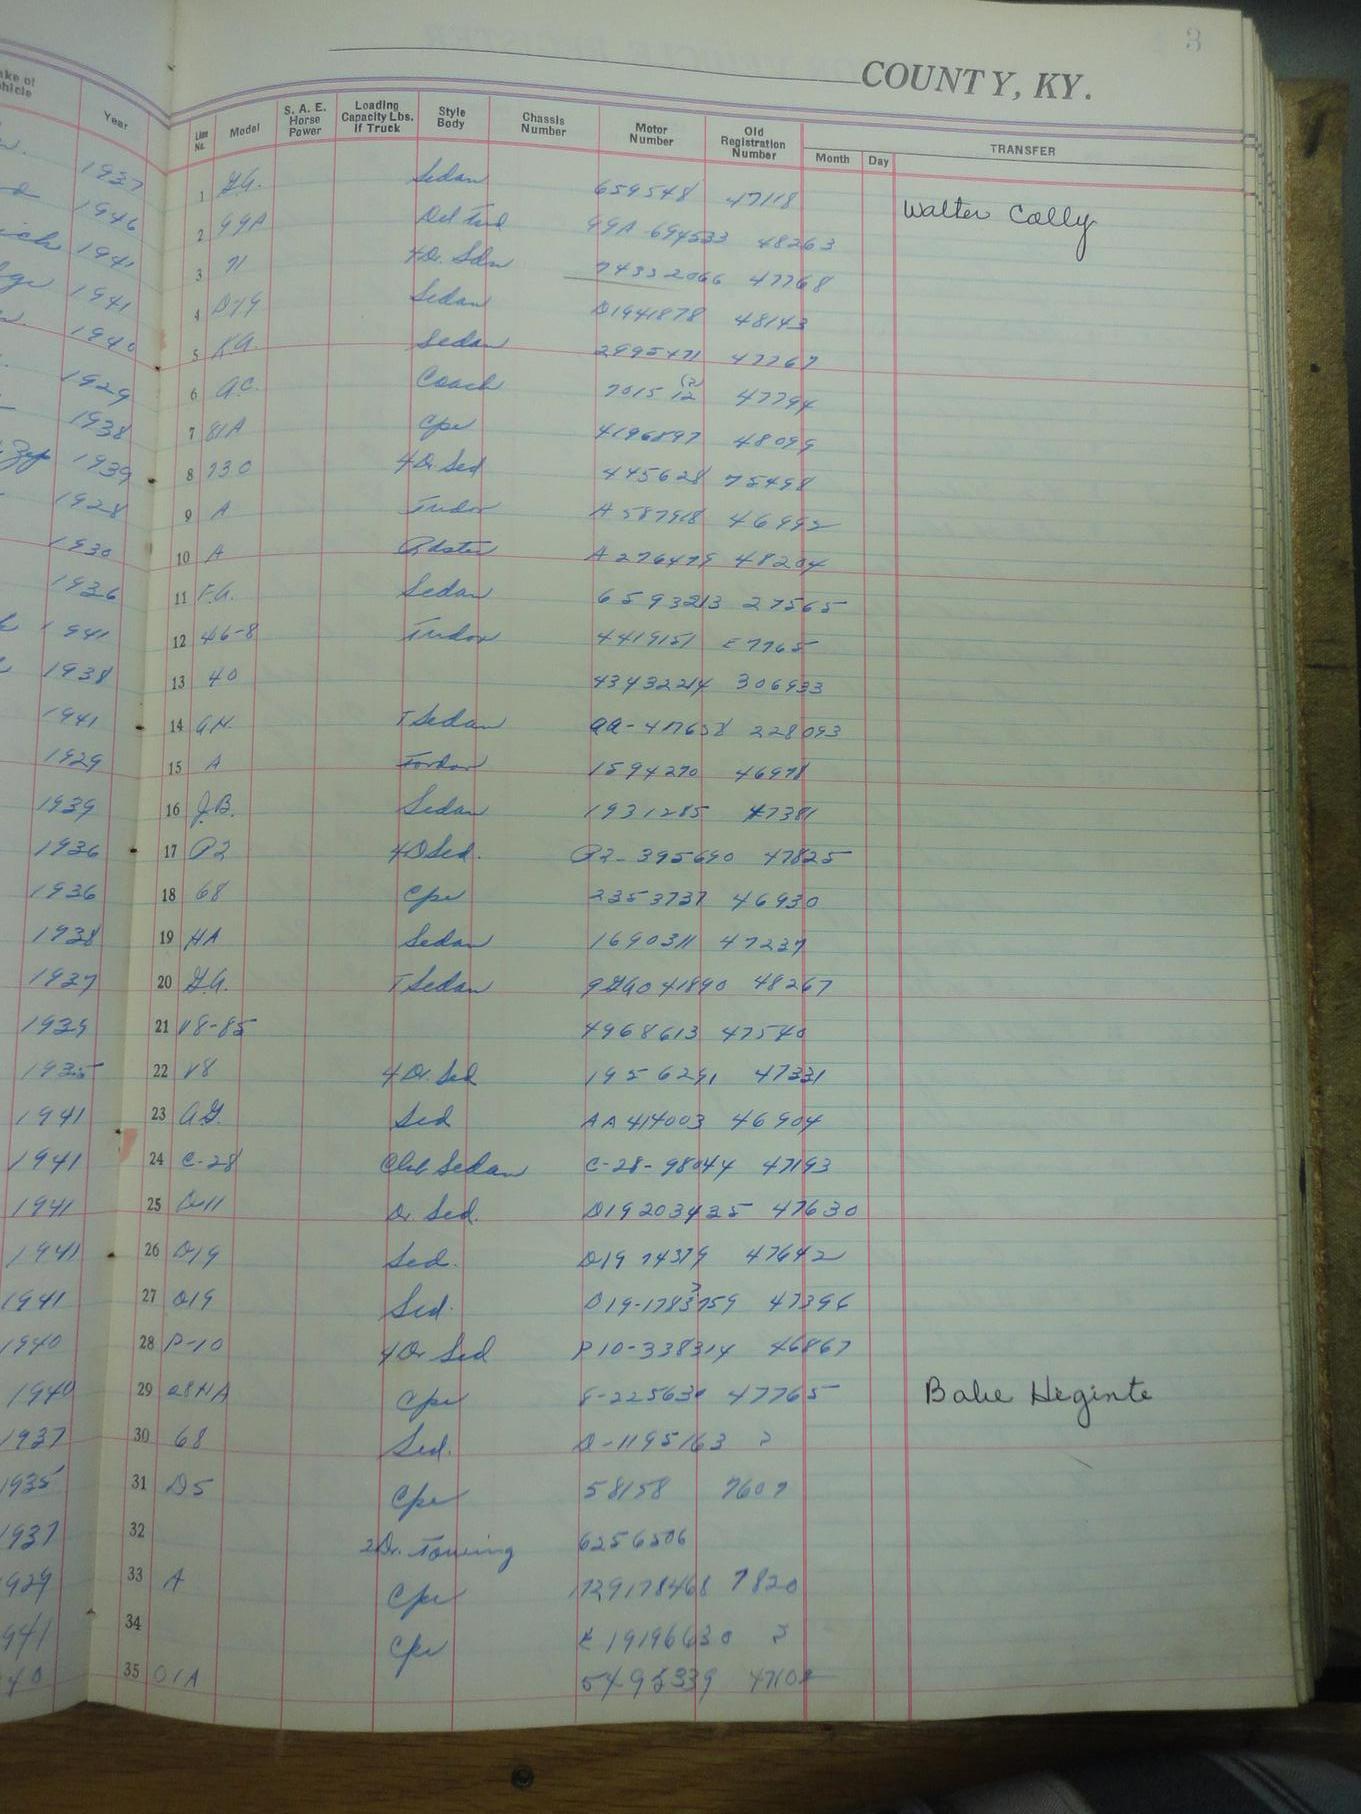 3
COUNTY, KY.
Year Line No. Model S. A. E. Horse Power Loading Capacity Lbs. If Truck Style Body Chassis Number Motor Number Old Registration Number TRANSFER
Month Day
1937 1 G.A. Sedan 659548 47118 Walter Colly
1946 2 Del Tud 48263
1941 3 71 4 Dr. Sdn 74332066 47768
1941 4 D19 Sedan D1941878 48143
1940 5 KA. Sedan 2995471 47767
1929 6 AC. Coach 701512 (2) 47794
1938 7 81A Cpe 4196897 48099
1939 8 730 4 Dr. Sed 445628 75498
1928 9 A Tudor A 587918 46992
1930 10 A Rdster A 276479 48204
1936 11 F.A. Sedan 6593213 27565
1941 12 Tudor 4419151 E7765
1938 13 40 43432214 306933
1941 14 T Sedan AA-417658 228093
1929 15 A Fordor 1594270 46978
1939 16 J.B. Sedan 1931285 47381
1936 17 P2 4 D Sed. P2-395690 47825
1936 18 68 Cpe 2353737 46930
1938 19 HA Sedan 1690311 47237
1937 20 G.A. T Sedan 48267
1939 21 V8-85 4968613 47540
1935 22 V8 4 Dr. Sed 1956291 47331
1941 23 A.G. Sed AA 414003 46904
1941 24 C-28 Club Sedan C-28-98044 47193
1941 25 Dr. Sed. D19203435 47630
1941 26 D19 Sed. D19 74379 47642
1941 27 D19 Sed. 47396
1940 28 P-10 4 Dr Sed P10-338314 46867
1940 29 Cpe 8-225630 47765 Babe Heginte
1937 30 68 Sed. D-1195163 ?
1935 31 D5 Cpe 58158 7607
1937 32 2 Dr. Touring 6256506
1929 33 A Cpe 7820
1941 34 Cpe K 19196630 ?
40 35 01A 5495339